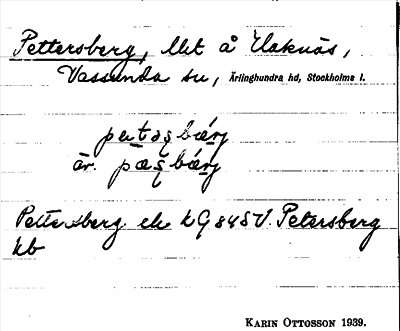 Pettersberg, lht å Haknäs,
Vassunda sn, Ärlinghundra hd, Stockholms l.
pet​əʂbærj
är. pæʂbærj
Pettersberg ek kG 845 V. Petersberg
kb
KARIN OTTOSSON 1939.